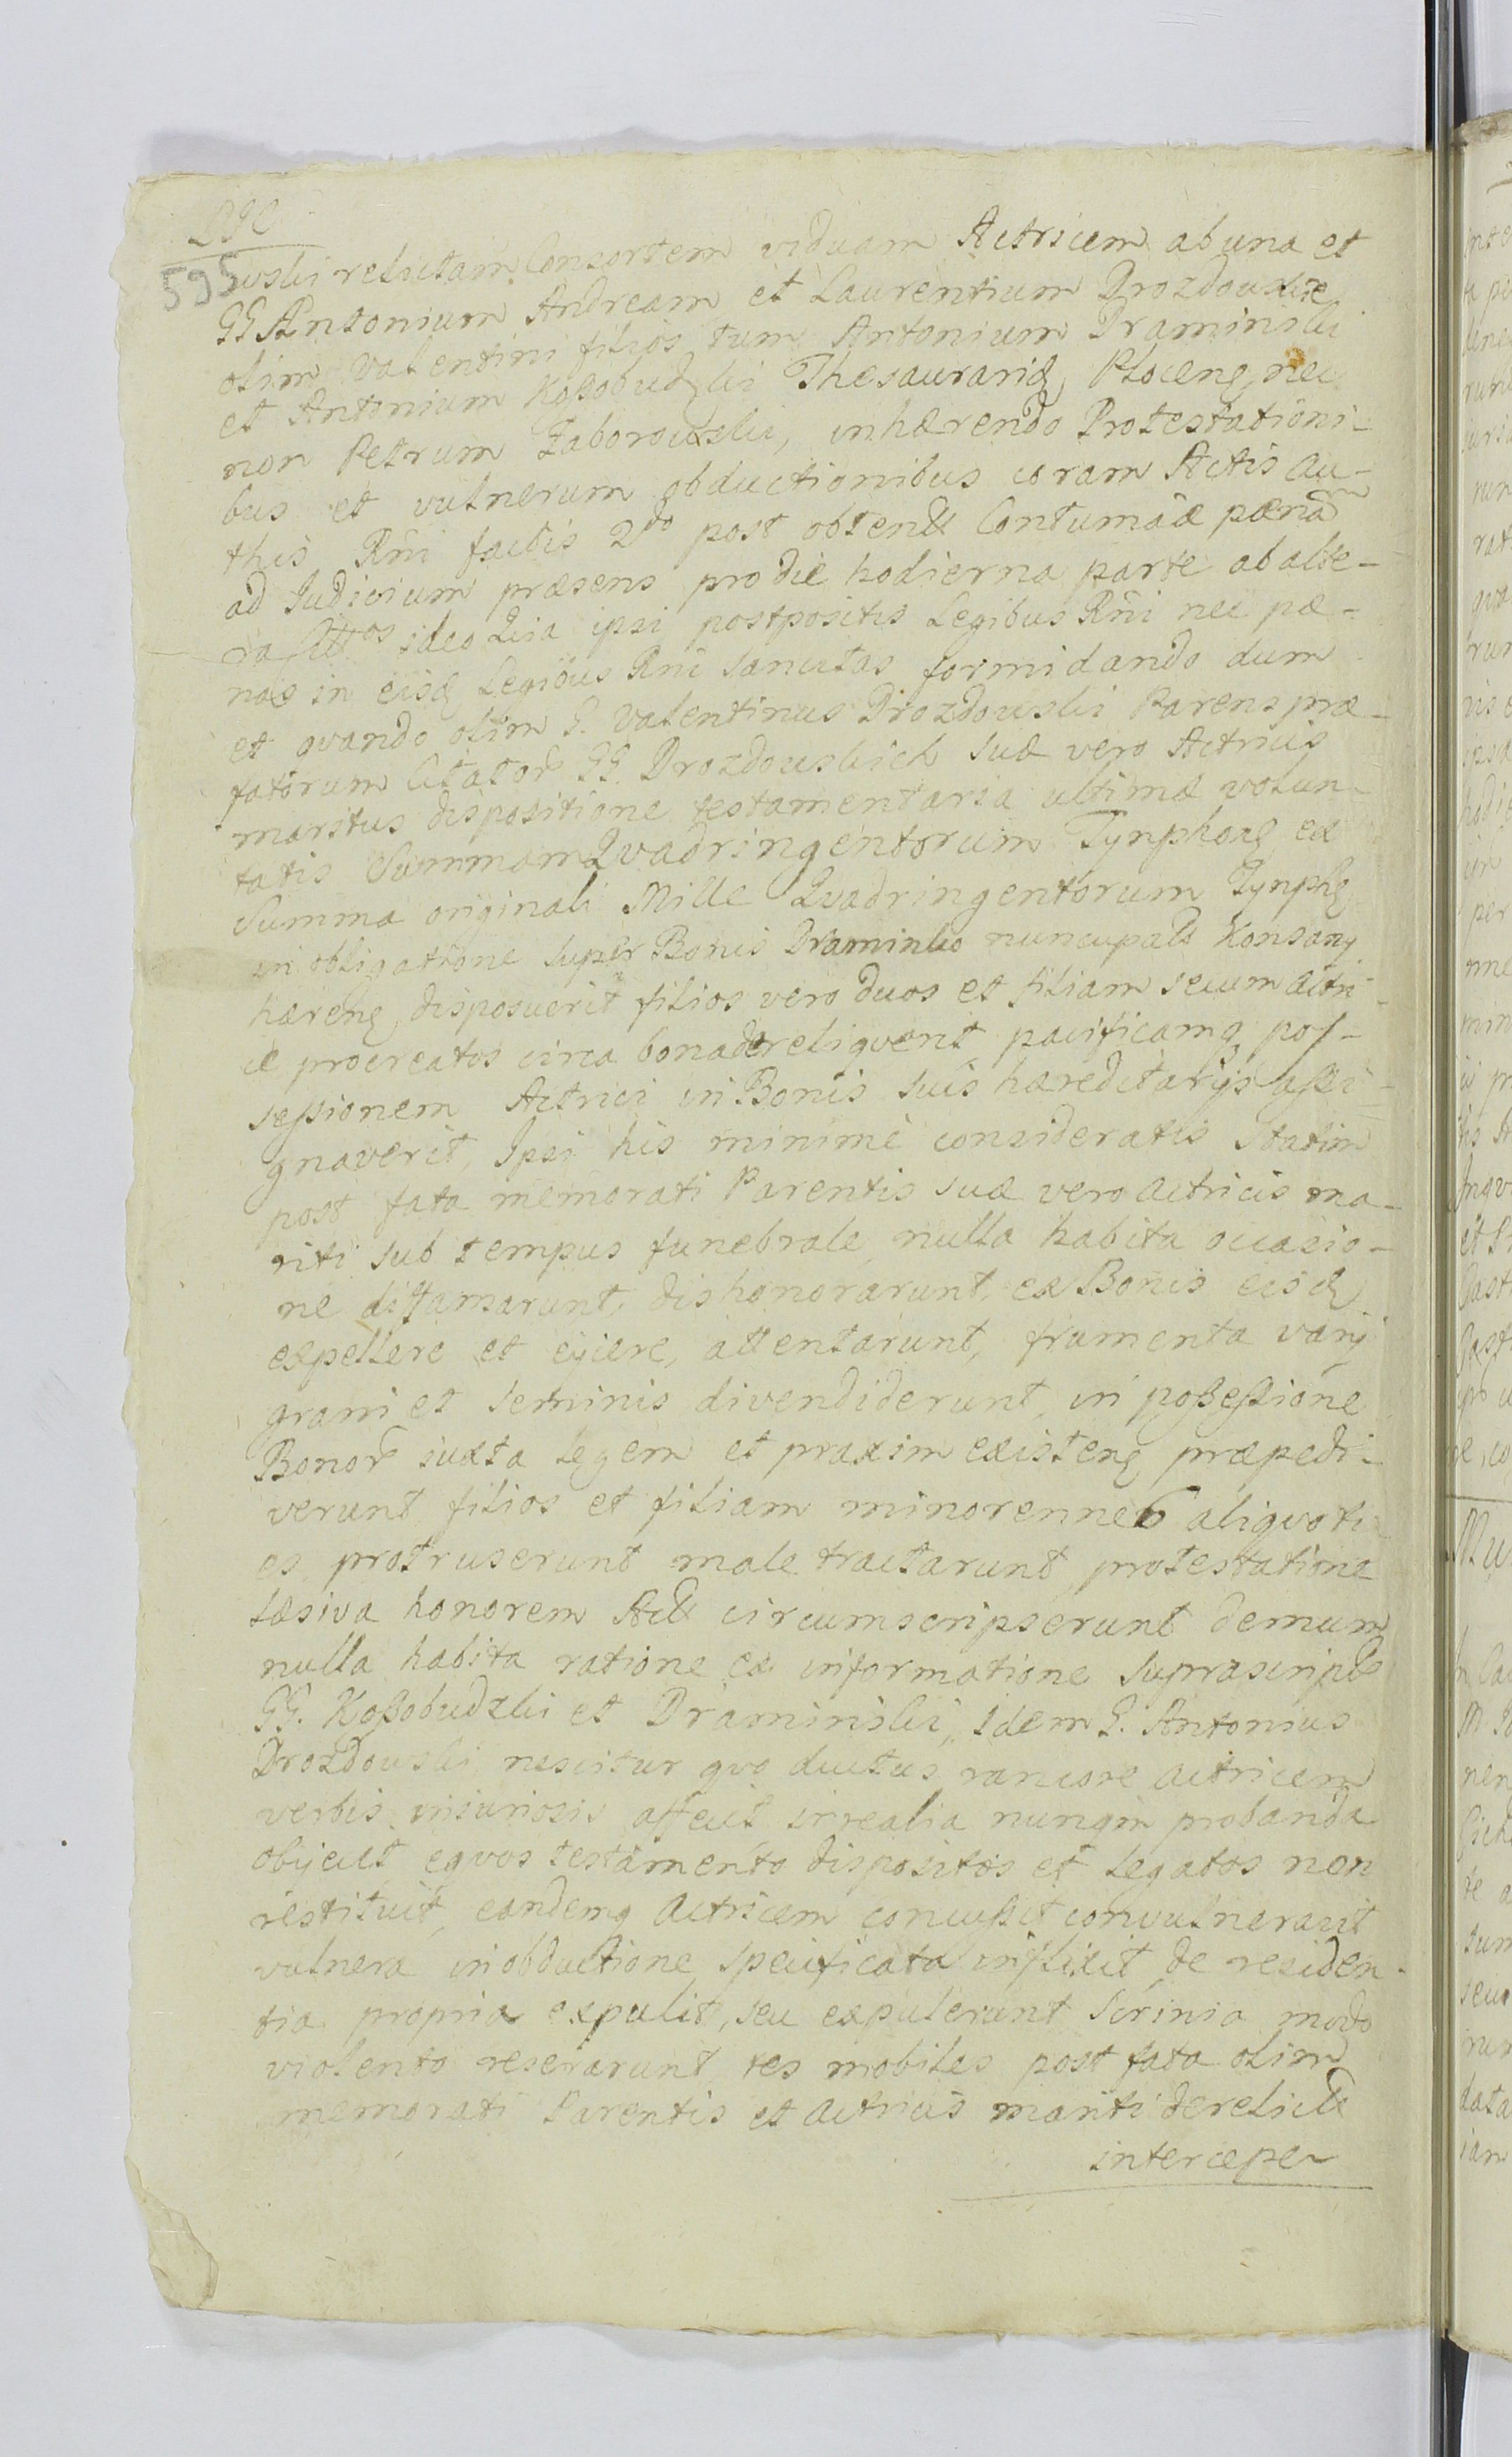 595
wski relictam Consortem viduam Actricem ab una et
GG Antonium Andream et Laurentium Drozdowskie
olim Valentini filios tum Antonium Draminski
et Antonium Kossobudzki Thesaurarid, Ploceng, nec
non Petrum Zaborowski, inhærendo Protestationi-
bus et vulnerum obductionibus coram Actis au-
this Rñi factis 2do post obtent Contumaciæ pænã
ad Judicium præsens pro die hodierna parte ab alte-
ra Cittos ideo Quia ipsi postpositis Legibus Rñi nec pæ-
nas in eisd, Legibus Rñi sancitas formidando dum
et qvando olim G. Valentinus Drozdowski Parens præ-
fatorum Citator GG. Drozdowskich suæ vero Actricis
maritus dispositione testamentaria ultimæ volun-
tatis Summam Qvadringentorum Tynphorg ex
Summa originali Mille Qvadringentorum Tynphg
in obligatione super Bonis Draminko nuncupats Konsany
hæreng, disposuerit filios vero duos et filiam secum Actri-
ce procreatos circa bona dereliqverit, pacificamq, pos-
sessionem Actrici in Bonis suis hæreditarijs assi-
gnaverit, Ipsi his minimè consideratis Statim
post fata memorati Parentis suæ vero Actricis ma-
riti sub tempus funebrale, nulla habita occasio-
ne diffamarunt, dishonorarunt, ex Bonis eisd,
expellere et eijcere, attentarunt, frumenta varij
grani et seminis divendiderunt, in possessione
Bonor juxta legem et praxim existeng præpedi-
verunt filios et filiam minorennes aliqvoti-
es protruserunt male tractarunt, protestatione
læsiva honorem Act circumscripserunt demum
nulla habita ratione ex informatione suprascripts
GG. Kossobudzki et Draminski, idem G. Antonius
Drozdowski nescitur qvo ductus rancore Actricem
verbis injuriosis affecit irrealia nunqm probanda
objecit eqvos testamento dispositos et legatos non
restituit, eandemq Actricem concussit convulneravit
vulnera in obductione specificata inflixit, de residen-
tia propria expulit, seu expulerunt Scrinia modo
violento reserarunt, res mobiles post fata olim
memorati Parentis et Actricis mariti derelict
intercepe